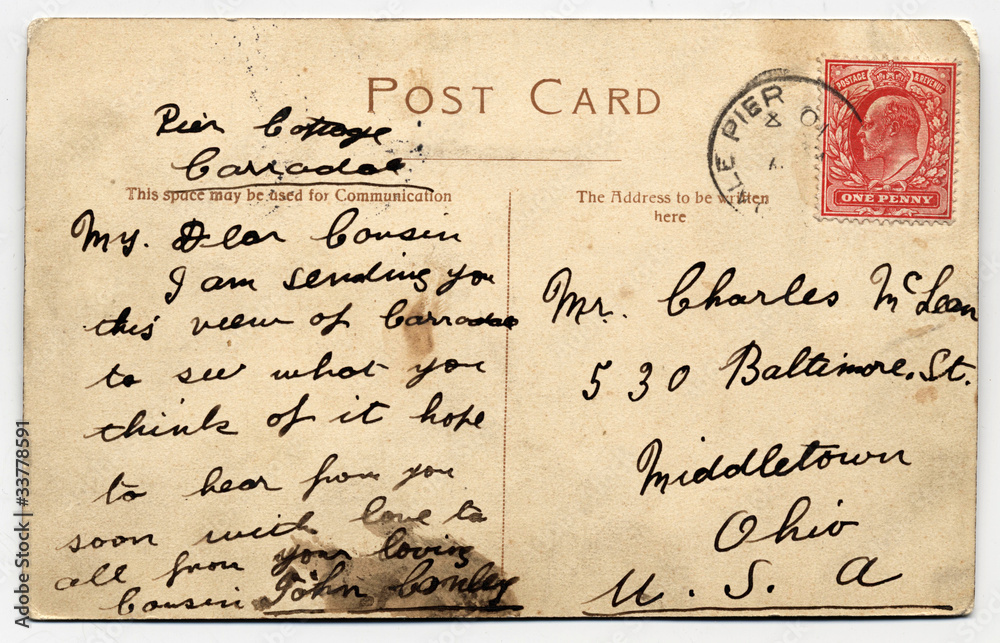 POST CARD
Pier Cottage
Carradale
This space may be used for Communication
My. Dear Cousin
I am sending you
this view of Carradale
to see what you
think of it hope
to hear from you
soon with love to
all from your loving
Cousin John
The Address to be written
here.
LE PIER
POSTAGE & REVENUE
ONE PENNY
Mr. Charles McLean
530 Baltimore. St.
Middletown
Ohio
U. S. A
Adobe Stock | #33778591